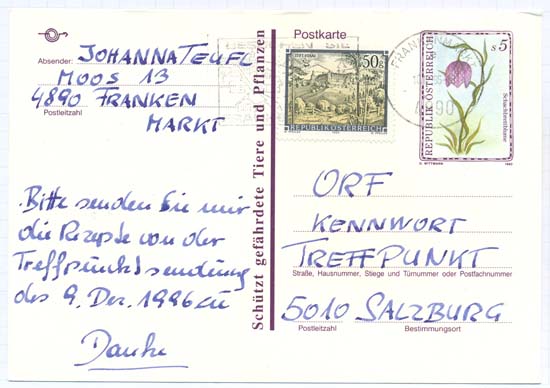 Absender: JOHANNA TEUFL
MOOS 13
4890 FRANKEN
Postleitzahl
MARKT
Bitte senden Sie mir
die Rezepte von der
Treffpunktsendung
des 9. Dez. 1996 zu
Danke
Schützt gefährdete Tiere und Pflanzen
Postkarte
50g
REPUBLIK ÖSTERREICH
S 5
REPUBLIK ÖSTERREICH
Schachbrettblume
ORF
KENNWORT
TREFFPUNKT
Straße, Hausnummer, Stiege und Türnummer oder Postfachnummer
5010 SALZBURG
Postleitzahl
Bestimmungsort